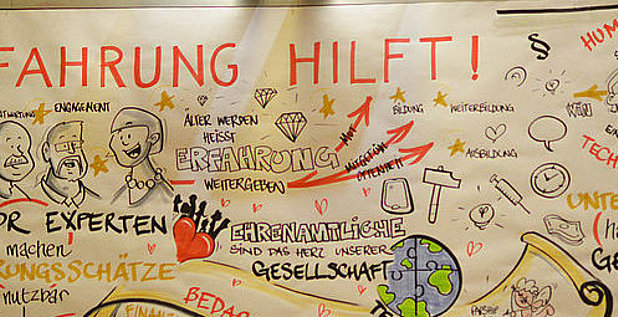 FAHRUNG HILFT!
ENGAGEMENT
ÄLTER WERDEN
HEISST
ERFAHRUNG
WEITERGEBEN
MUT
MITGEFÜHL
OFFENHEIT
BILDUNG
WEITERBILDUNG
AUSBILDUNG
§
HUM
TECH
UNTE
OR EXPERTEN
machen
RUNGSSCHÄTZE
nutzbar
EHRENAMTLICHE
SIND DAS HERZ UNSERER
GESELLSCHAFT
BEDA
FINANZ
TE